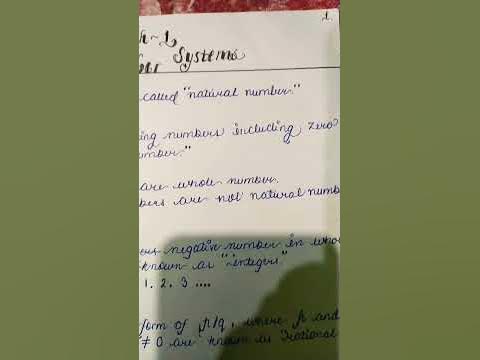 1.
h-1
Systems
called "natural number."
ing numbers including zero
umber."
are whole number.
bers are not natural numb
ers negative number in who
known as "integers"
1. 2. 3 ....
form of p/q, where p and
≠ 0 are known as "rational